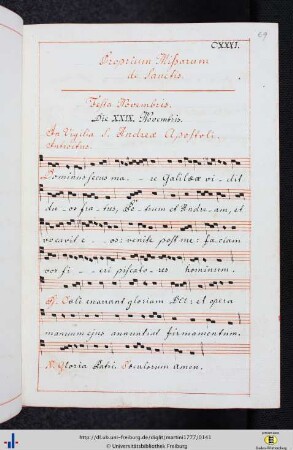 CXXXI.
69
Proprium Missarum
de Sanctis.
Festa Novembris.
Die XXIX. Novembris.
In Vigilia S. Andreæ Apostoli.
Introitus.
Dominus secus ma - re Galilææ vi - dit
du - os fratres, Pe - trum et Andre - am, et
vocavit e - os: venite post me: faciam
vos fi - eri piscato - res hominum.
Ps. Cœli enarrant gloriam DEI: et opera
manuum ejus annuntiat firmamentum.
V. Gloria Patri. Sæculorum Amen.
http://dl.ub.uni-freiburg.de/diglit/martini1777/0141
© Universitätsbibliothek Freiburg